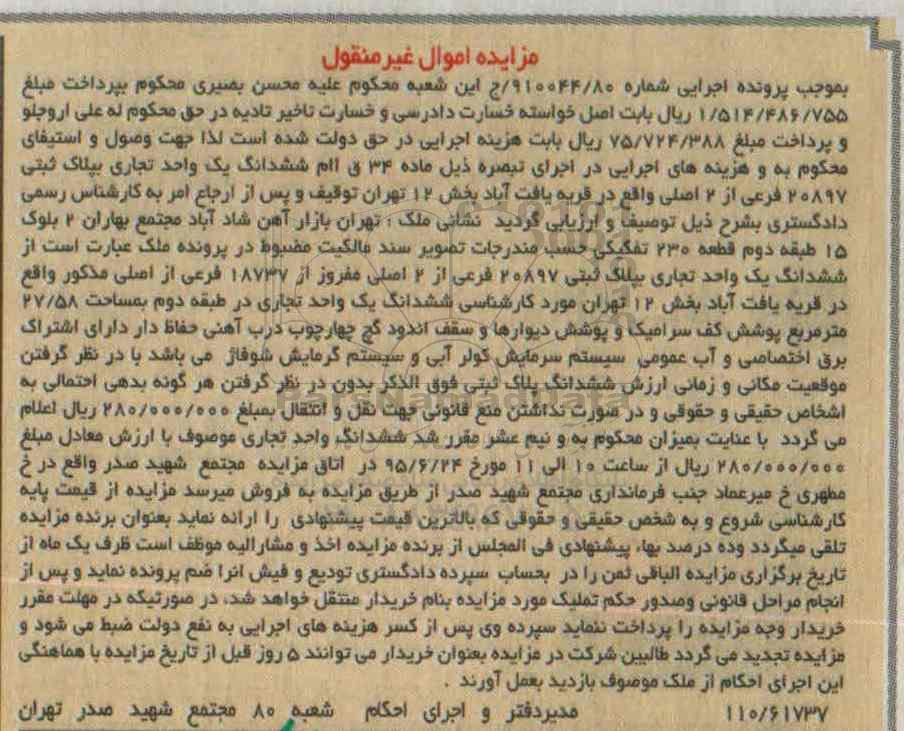 مزایده اموال غیرمنقول
بموجب پرونده اجرایی شماره ۹۱۰۰۴۴/۸۰/ج این شعبه محکوم علیه محسن بصیری محکوم بپرداخت مبلغ
۱/۵۱۴/۴۸۶/۷۵۵ ریال بابت اصل خواسته خسارت دادرسی و خسارت تاخیر تادیه در حق محکوم له علی اروجلو
و پرداخت مبلغ ۷۵/۷۲۴/۳۸۸ ریال بابت هزینه اجرایی در حق دولت شده است لذا جهت وصول و استیفای
محکوم به و هزینه های اجرایی در اجرای تبصره ذیل ماده ۳۴ ق اام ششدانگ یک واحد تجاری بپلاک ثبتی
۲۰۸۹۷ فرعی از ۲ اصلی واقع در قریه یافت آباد بخش ۱۲ تهران توقیف و پس از ارجاع امر به کارشناس رسمی
دادگستری بشرح ذیل توصیف و ارزیابی گردید نشانی ملک : تهران بازار آهن شاد آباد مجتمع بهاران ۲ بلوک
۱۵ طبقه دوم قطعه ۲۳۰ تفکیکی حسب مندرجات تصویر سند مالکیت مضبوط در پرونده ملک عبارت است از
ششدانگ یک واحد تجاری بپلاگ ثبتی ۲۰۸۹۷ فرعی از ۲ اصلی مفروز از ۱۸۷۳۷ فرعی از اصلی مذکور واقع
در قریه یافت آباد بخش ۱۲ تهران مورد کارشناسی ششدانگ یک واحد تجاری در طبقه دوم بمساحت ۲۷/۵۸
مترمربع پوشش کف سرامیک و پوشش دیوارها و سقف اندود گچ چهارچوب درب آهنی حفاظ دار دارای اشتراک
برق اختصاصی و آب عمومی سیستم سرمایش کولر آبی و سیستم گرمایش شوفاژ می باشد با در نظر گرفتن
موقعیت مکانی و زمانی ارزش ششدانگ پلاک ثبتی فوق الذکر بدون در نظر گرفتن هر گونه بدهی احتمالی به
اشخاص حقیقی و حقوقی و در صورت نداشتن منع قانونی جهت نقل و انتقال بمبلغ ۲۸۰/۰۰۰/۰۰۰ ریال اعلام
می گردد با عنایت بمیزان محکوم به و نیم عشر مقرر شد ششدانگ واحد تجاری موصوف با ارزش معادل مبلغ
۲۸۰/۰۰۰/۰۰۰ ریال از ساعت ۱۰ الی ۱۱ مورخ ۹۵/۶/۲۴ در اتاق مزایده مجتمع شهید صدر واقع در خ
مطهری خ میرعماد جنب فرمانداری مجتمع شهید صدر از طریق مزایده به فروش میرسد مزایده از قیمت پایه
کارشناسی شروع و به شخص حقیقی و حقوقی که بالاترین قیمت پیشنهادی را ارائه نماید بعنوان برنده مزایده
تلقی میگردد وده درصد بهاء پیشنهادی فی المجلس از برنده مزایده اخذ و مشارالیه موظف است ظرف یک ماه از
تاریخ برگزاری مزایده الباقی ثمن را در بحساب سپرده دادگستری تودیع و فیش انرا ضم پرونده نماید و پس از
انجام مراحل قانونی وصدور حکم تملیک مورد مزایده بنام خریدار منتقل خواهد شد، در صورتیکه در مهلت مقرر
خریدار وجه مزایده را پرداخت ننماید سپرده وی پس از کسر هزینه های اجرایی به نفع دولت ضبط می شود و
مزایده تجدید می گردد طالبین شرکت در مزایده بعنوان خریدار می توانند ۵ روز قبل از تاریخ مزایده با هماهنگی
این اجرای احکام از ملک موصوف بازدید بعمل آورند .
۱۱۰/۶۱۷۳۷ مدیردفتر و اجرای احکام شعبه ۸۰ مجتمع شهید صدر تهران